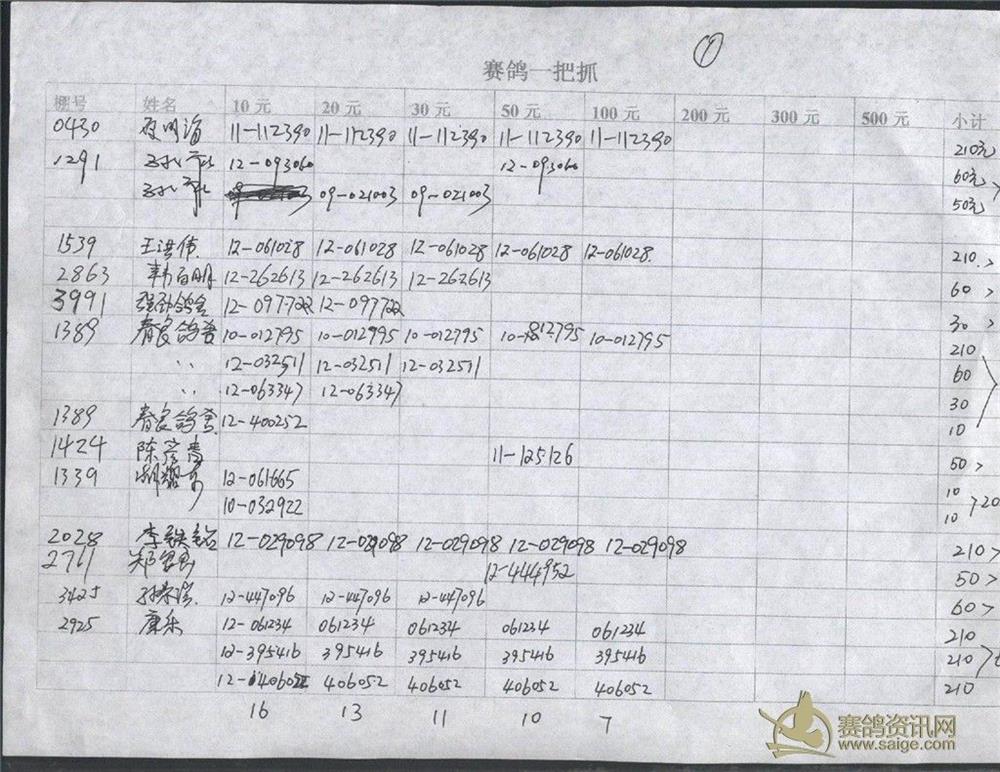 ①
赛鸽一把抓
棚号 姓名 10元 20元 30元 50元 100元 200元 300元 500元 小计
0430 11-112390 11-112390 11-112390 11-112390 11-112390 210元
1291 12-093060 12-093060 60元
09-021003 09-021003 50元
1539 王洪伟 12-061028 12-061028 12-061028 12-061028 12-061028 210
2863 韩百明 12-262613 12-262613 12-262613 60
3991 强劲鸽舍 12-097722 12-097722 30
1389 春良鸽舍 10-012795 10-012795 10-012795 10-012795 10-012795 210
〃 12-032511 12-032511 12-032511 60
〃 12-063347 12-063347 30
1389 春良鸽舍 12-400252 10
1424 陈彦青 11-125126 50
1339 12-061665 10
10-032922 10 20
2028 李 12-029098 12-029098 12-029098 12-029098 12-029098 210
2711 郑 12-444952 50
3425 12-447096 12-447096 12-447096 60
2925 康乐 12-061234 061234 061234 061234 061234 210
12-395416 395416 395416 395416 395416 210
12-406052 406052 406052 406052 406052 210
16 13 11 10 7
赛鸽资讯网
www.saige.com